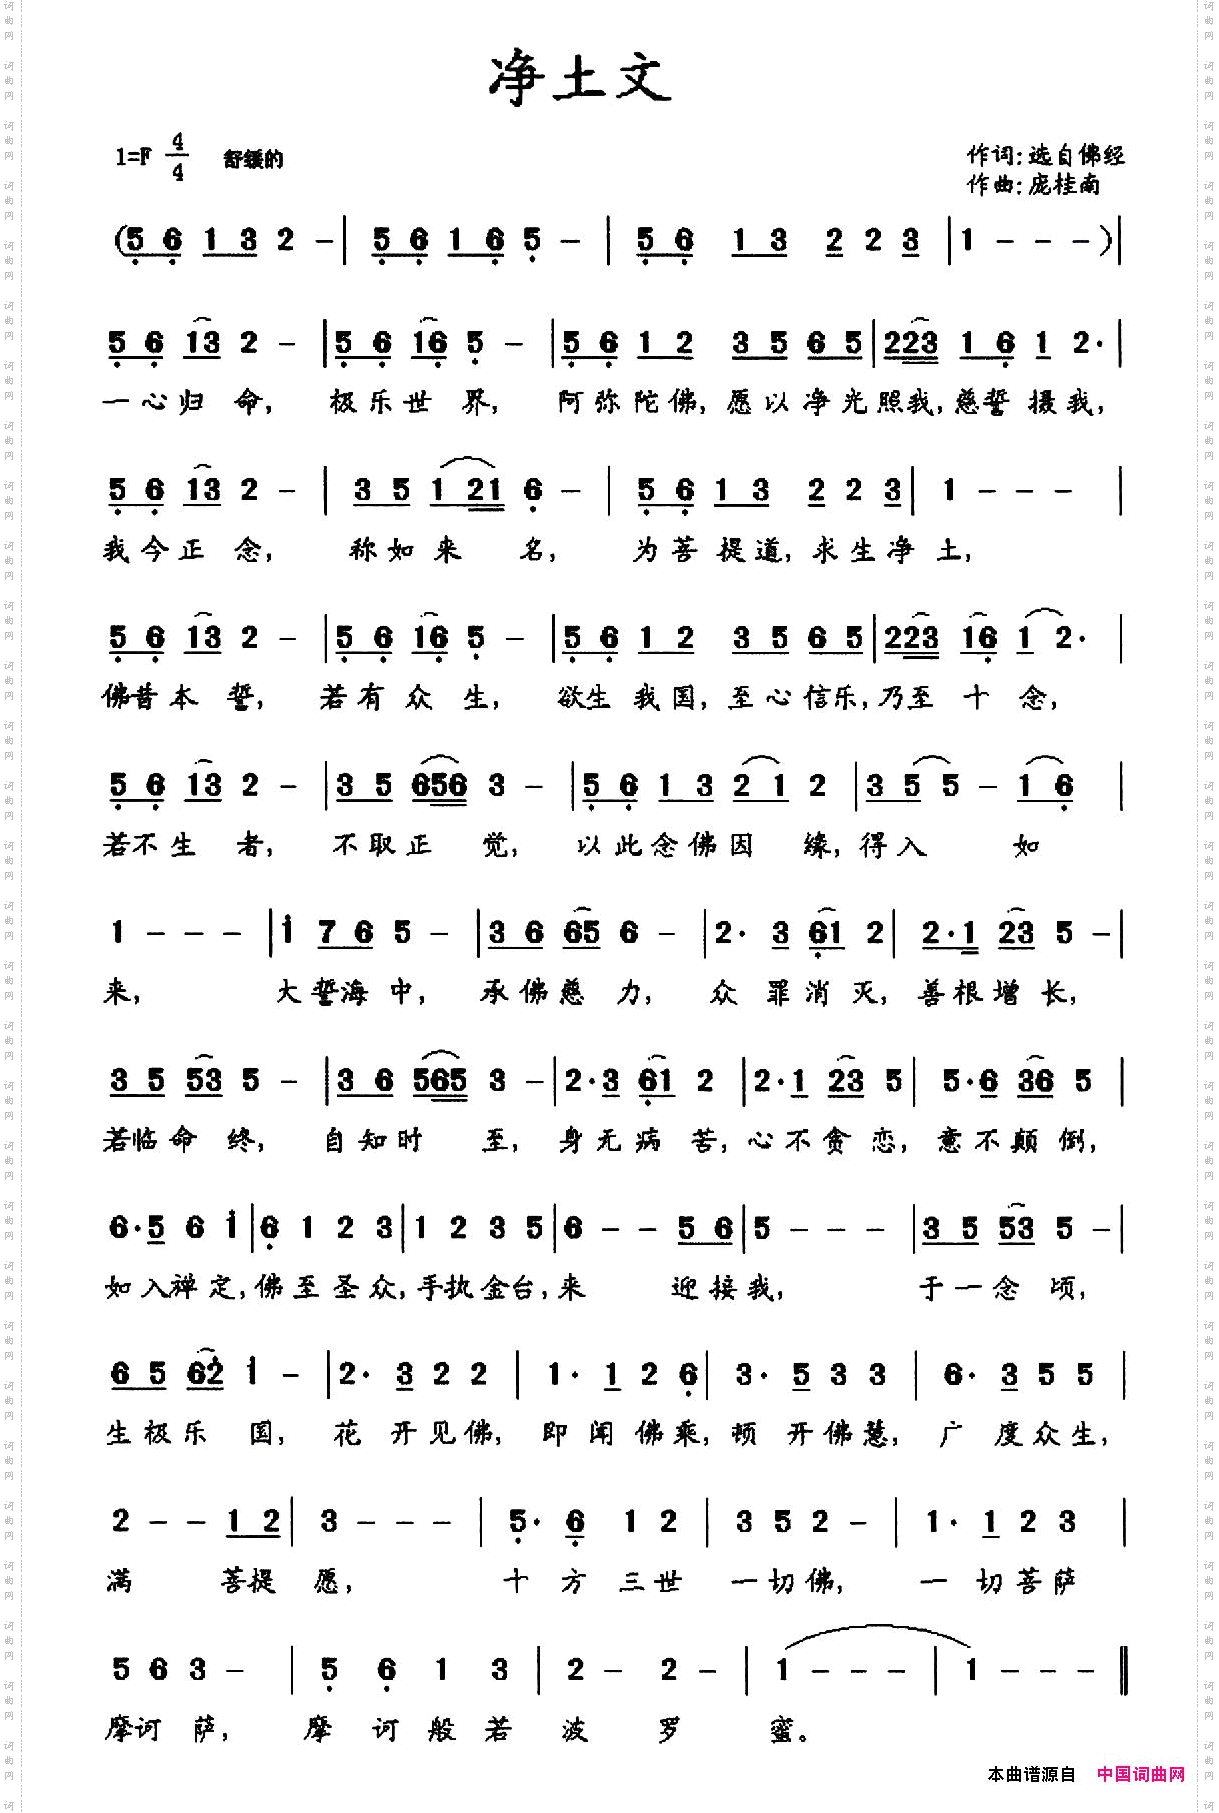 净土文
1=F 4/4 舒缓的
作词:选自佛经
作曲:庞桂南
(5 6 1 3 2 - | 5 6 1 6 5 - | 5 6 1 3 2 2 3 | 1 - - - ) |
5 6 13 2 - | 5 6 16 5 - | 5 6 1 2 3 5 6 5 | 223 1 6 1 2· |
一心归 命, 极乐世 界, 阿弥陀佛,愿以净光照我,慈誓摄我,
5 6 13 2 - | 3 5 1 21 6 - | 5 6 1 3 2 2 3 | 1 - - - |
我今正 念, 称如来 名, 为菩提道,求生净土,
5 6 13 2 - | 5 6 16 5 - | 5 6 1 2 3 5 6 5 | 223 16 1 2· |
佛昔本 誓, 若有众 生, 欲生我国,至心信乐,乃至十 念,
5 6 13 2 - | 3 5 656 3 - | 5 6 1 3 2 1 2 | 3 5 5 - 1 6 |
若不生 者, 不取正 觉, 以此念佛因 缘,得入 如
1 - - - | i 7 6 5 - | 3 6 65 6 - | 2· 3 61 2 | 2·1 23 5 - |
来, 大誓海中, 承佛慈 力, 众 罪消 灭,善根增 长,
3 5 53 5 - | 3 6 565 3 - | 2·3 61 2 | 2·1 23 5 | 5·6 36 5 |
若临命 终, 自知时 至, 身无病 苦,心不贪恋, 意不颠 倒,
6·5 6 i | 6 1 2 3 | 1 2 3 5 | 6 - - 5 6 | 5 - - - | 3 5 53 5 - |
如入禅定,佛至圣众,手执金台,来 迎接我, 于一念 顷,
6 5 62 i - | 2· 3 2 2 | 1· 1 2 6 | 3· 5 3 3 | 6· 3 5 5 |
生极乐 国, 花 开见佛, 即 闻佛乘, 顿 开佛慧, 广 度众生,
2 - - 1 2 | 3 - - - | 5· 6 1 2 | 3 5 2 - | 1· 1 2 3 |
满 菩提 愿, 十 方三世 一切佛, 一 切菩萨
5 6 3 - | 5 6 1 3 | 2 - 2 - | 1 - - - | 1 - - - ‖
摩诃萨, 摩 诃般若 波 罗 蜜。
本曲谱源自 中国词曲网